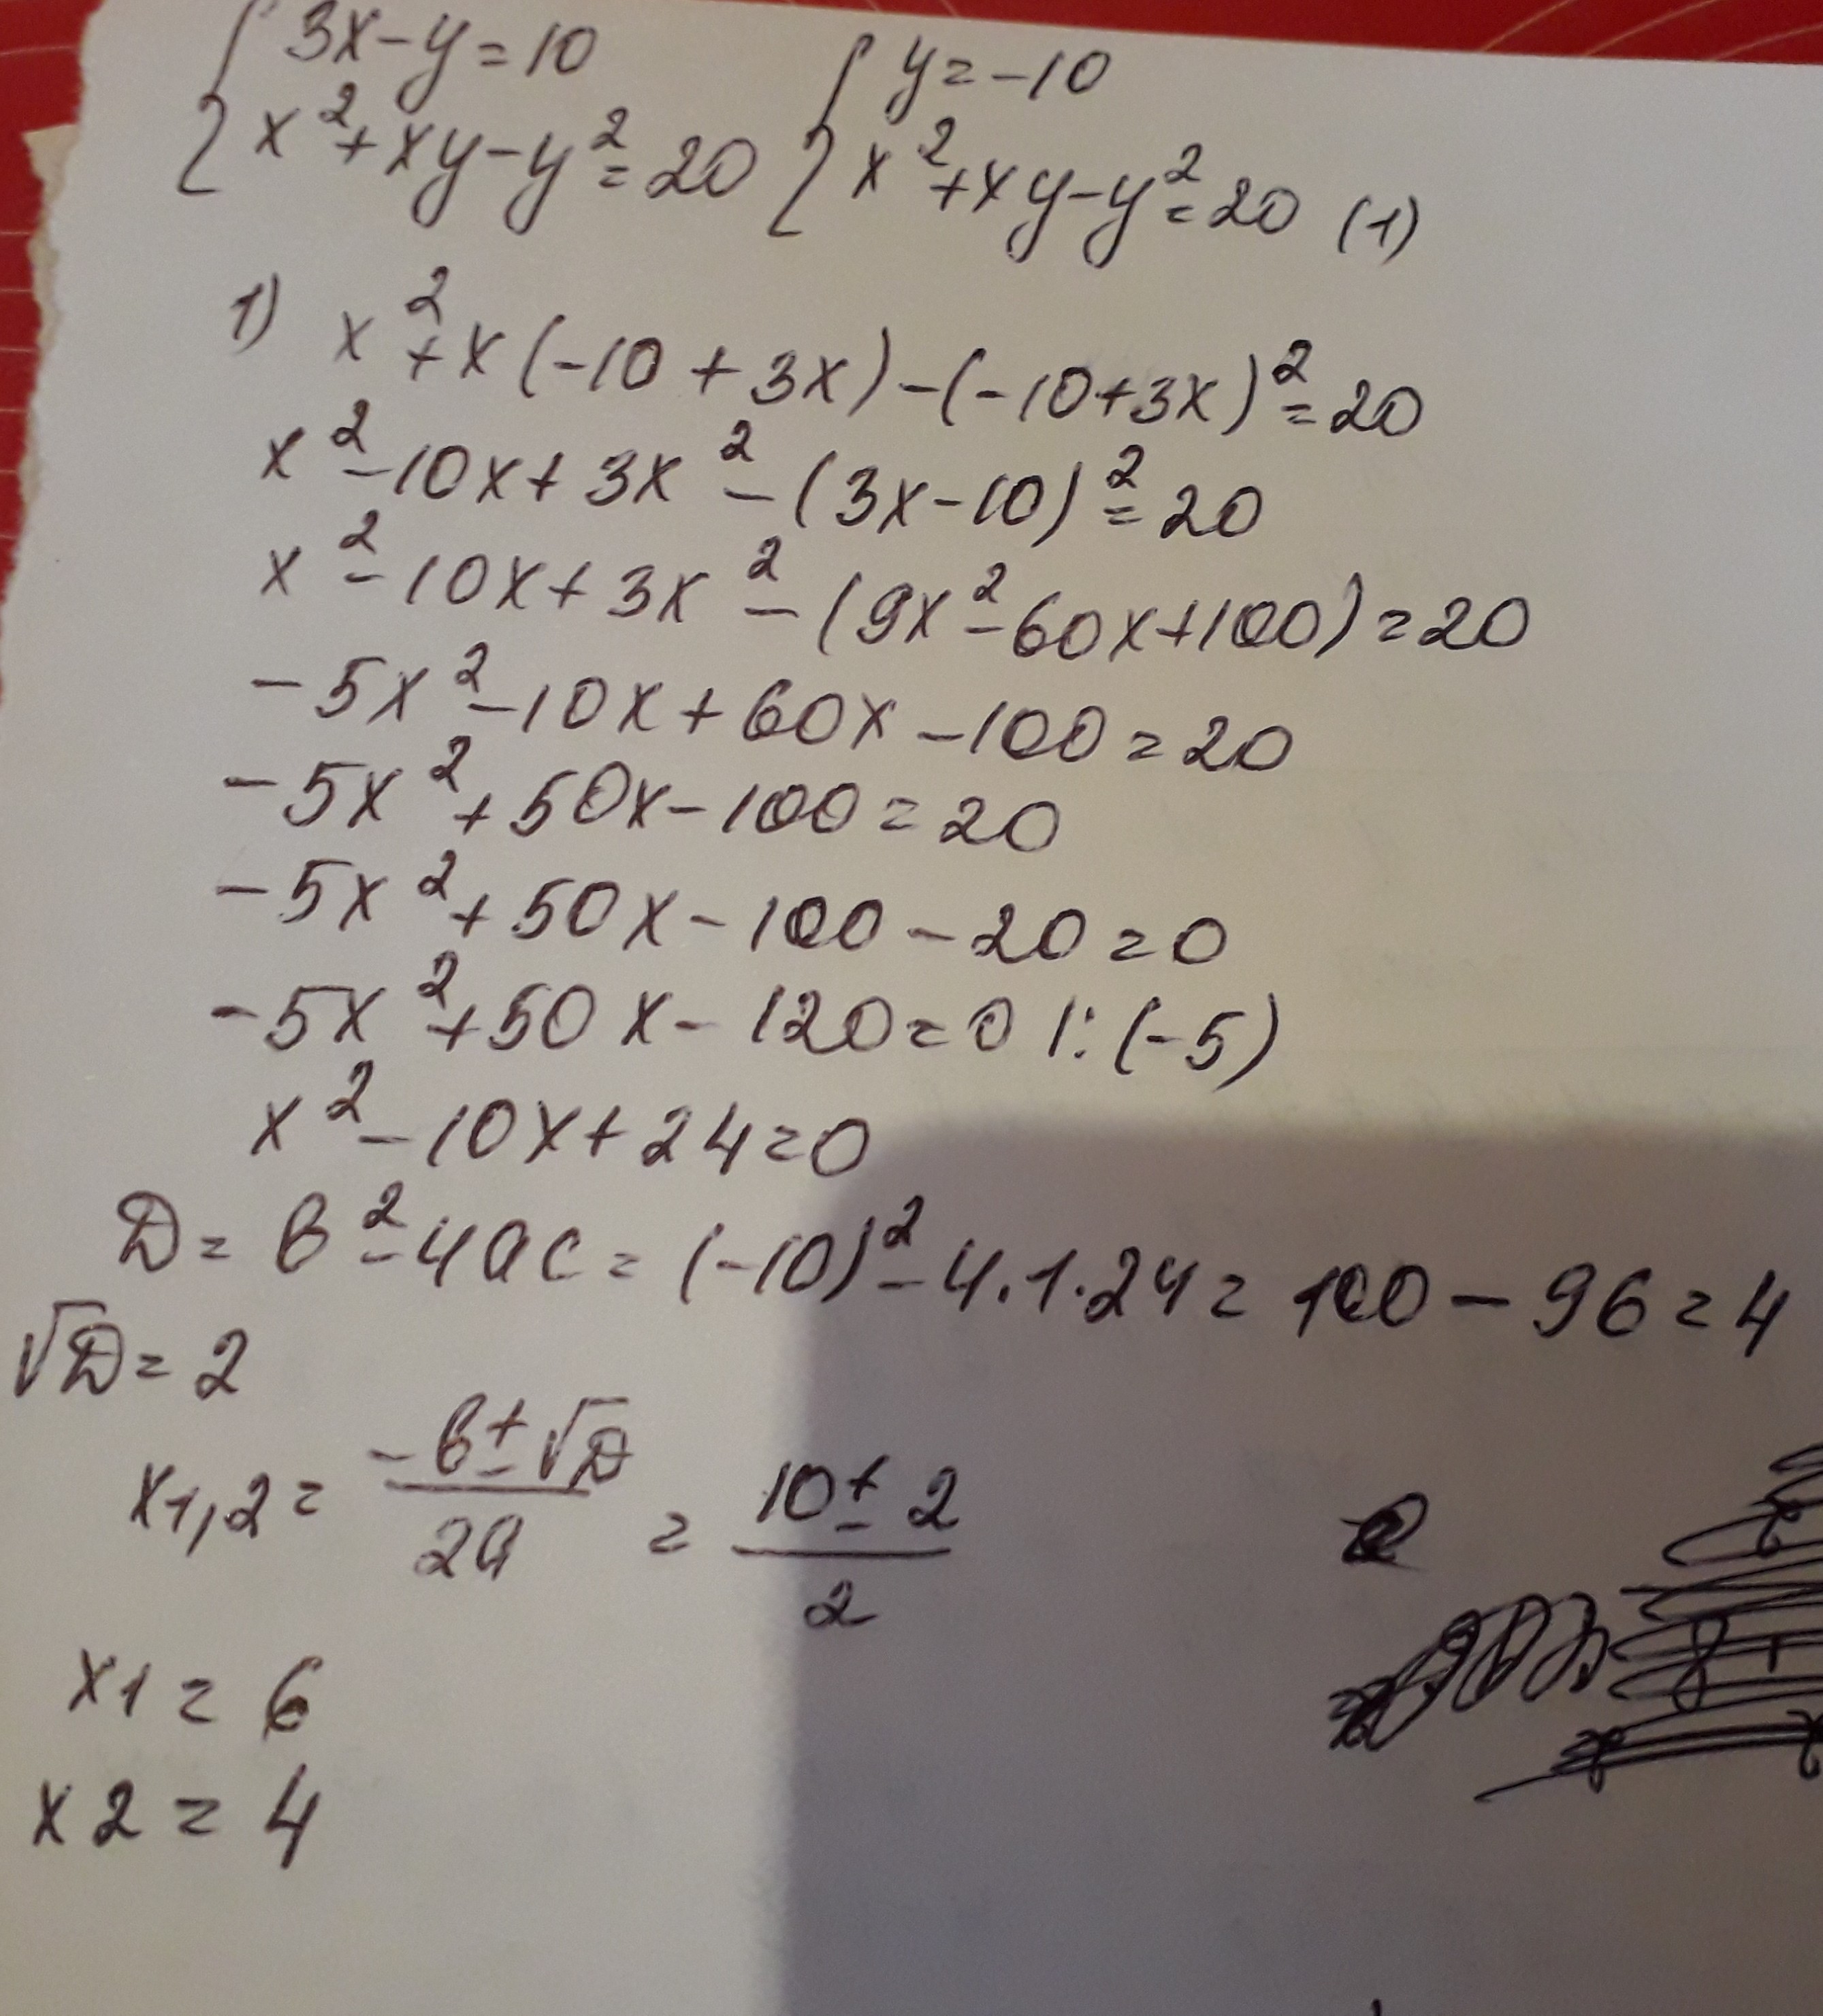 { 3x-y=10 { y=-10
{ x²+xy-y²=20 { x²+xy-y²=20 (1)
1) x²+x(-10+3x)-(-10+3x)²=20
x²-10x+3x²-(3x-10)²=20
x²-10x+3x²-(9x²-60x+100)=20
-5x²-10x+60x-100=20
-5x²+50x-100=20
-5x²+50x-100-20=0
-5x²+50x-120=0 |:(-5)
x²-10x+24=0
D=b²-4ac=(-10)²-4·1·24=100-96=4
√D=2
x1,2=(-b±√D)/2a=(10±2)/2
x1=6
x2=4